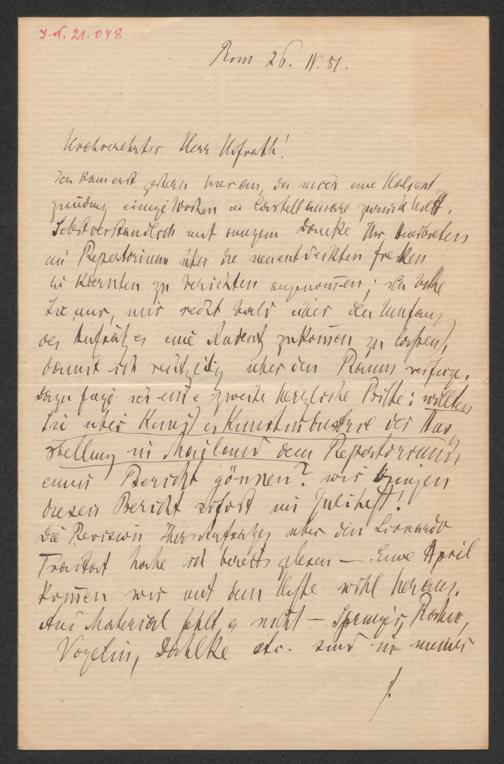 J.N. 21.048
Rom 26. IV. 81.
Hochverehrter Herr Hofrath!
Ich kam erst gestern hier an, da mich eine Halsent
zündung einige Wochen in Castellamare zurück hielt.
Selbstverständlich mit innigem Danke Ihr Anerbieten
im Repertorium über die neuentdeckten Fresken
in Kärnten zu berichten angenommen; ich bitte
Sie nur, mir recht bald über den Umfang
des Aufsatzes eine Andeut. zukommen zu lassen,
damit ich rechtzeitig über den Raum verfüge.
Dazu füge ich eine zweite herzliche Bitte: wollten
Sie über Kunst u Kunstindustrie der Aus
stellung in Mailand dem Repertorium
einen Bericht gönnen? wir bringen
diesen Bericht sofort im Juliheft!
Die Revision Ihres Aufsatzes über den Lionardo
Tractat habe ich bereits gelesen — Ende April
kommen wir mit dem Hefte wohl heraus.
An Material fehlt es nicht — Springer, Rahn,
Vögelin, Dahlke etc. sind in meiner